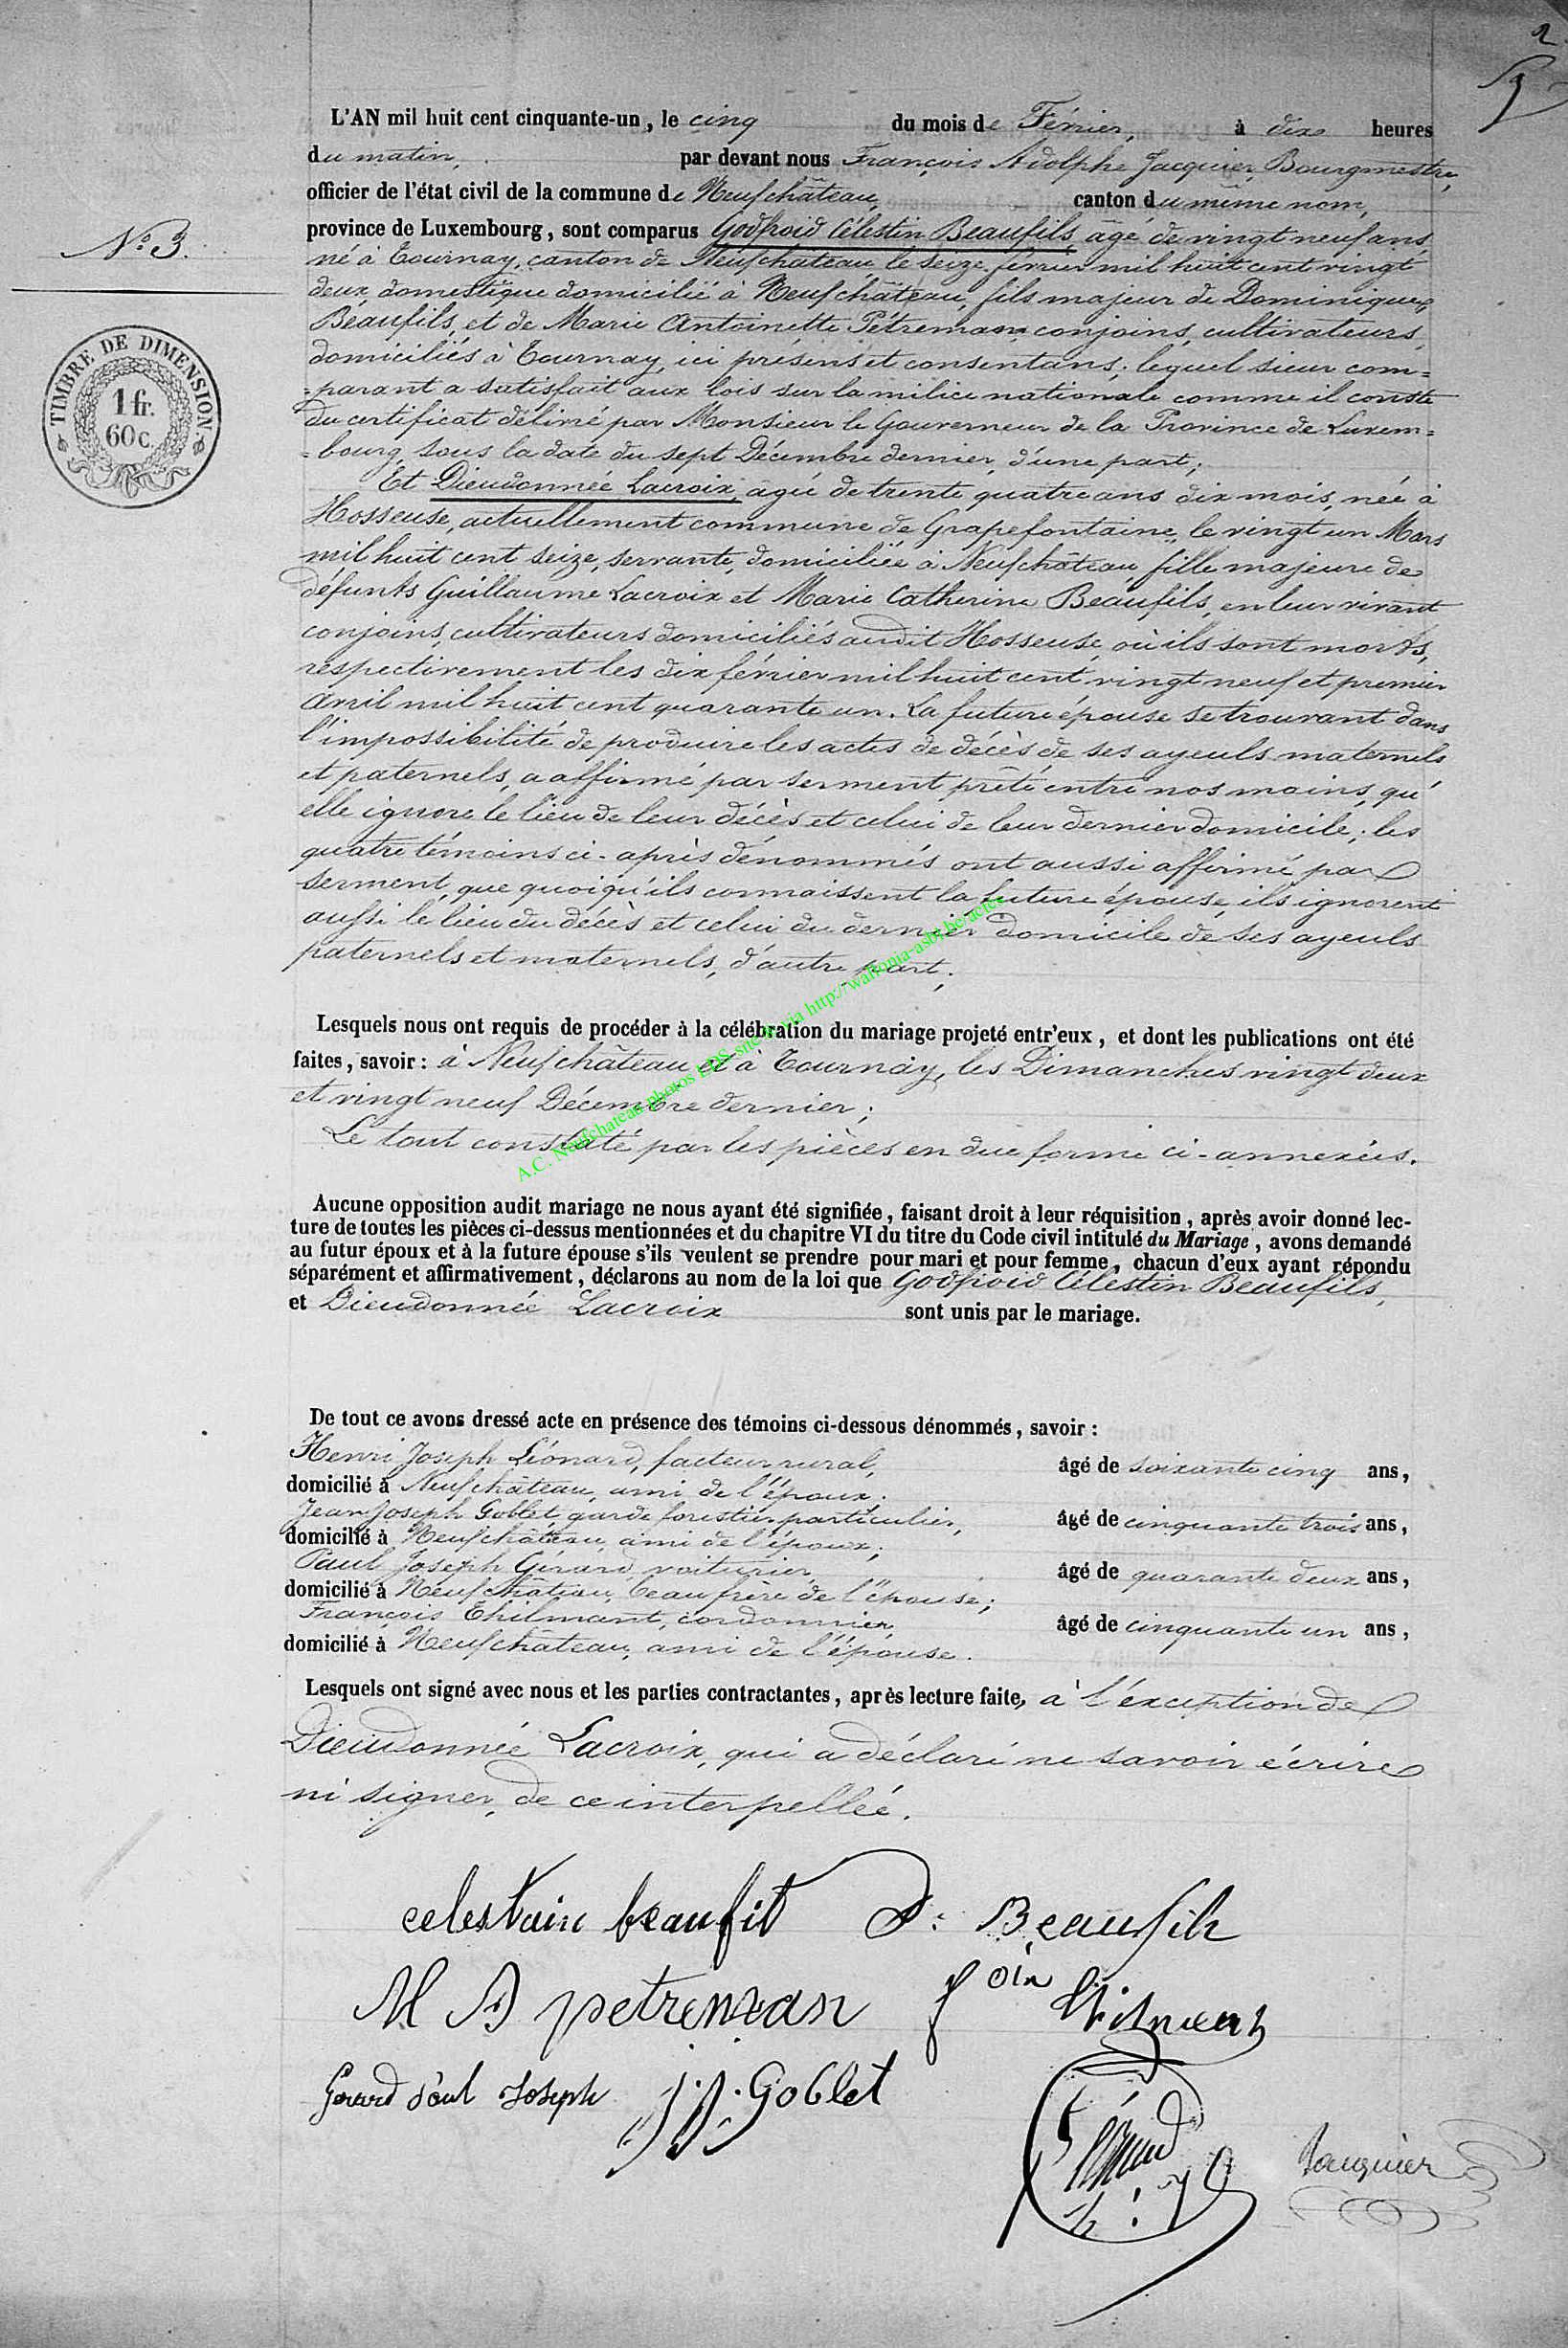 2
L'AN mil huit cent cinquante-un, le cinq du mois de Février, à dix heures
du matin, par devant nous François Adolphe Jacquier, Bourgmestre,
officier de l'état civil de la commune de Neufchâteau, canton du même nom,
N° 3.
province de Luxembourg, sont comparus Godfroid Célestin Beaufils, agé de vingt neuf ans,
né à Tournay, canton de Neufchâteau, le seize février mil huit cent vingt
deux, domestique domicilié à Neufchâteau, fils majeur de Dominique
Beaufils, et de Marie Antoinette Pétreman, conjoins, cultivateurs,
domiciliés à Tournay, ici présens et consentans; lequel sieur com=
=parant a satisfait aux lois sur la milice nationale comme il conste
du certificat délivré par Monsieur le Gouverneur de la Province de Luxem=
=bourg sous la date du sept Décembre dernier, d'une part;
TIMBRE DE DIMENSION
1 fr.
60 c.
Et Dieudonnée Lacroix, agée de trente quatre ans dix mois, née à
Hosseuse, actuellement commune de Grapefontaine, le vingt un Mars
mil huit cent seize, servante, domiciliée à Neufchâteau, fille majeure de
défunts Guillaume Lacroix et Marie Catherine Beaufils, en leur vivant
conjoins, cultivateurs domiciliés audit Hosseuse, où ils sont morts,
respectivement les dix février mil huit cent vingt neuf et premier
avril mil huit cent quarante un. La future épouse se trouvant dans
l'impossibilité de produire les actes de décès de ses ayeuls maternels
et paternels, a affirmé par serment prêté entre nos mains, qu'
elle ignore le lieu de leur décès et celui de leur dernier domicile; les
quatre témoins ci-après dénommés ont aussi affirmé par
serment, que quoiqu'ils connaissent la future épouse, ils ignorent
aussi le lieu du décès et celui du dernier domicile de ses ayeuls
paternels et maternels, d'autre part;
A.C. Neufchateau photos LDS site via http://wallonia-asbl.be/actes
Lesquels nous ont requis de procéder à la célébration du mariage projeté entr'eux, et dont les publications ont été
faites, savoir: à Neufchâteau et à Tournay, les Dimanches vingt deux
et vingt neuf Décembre dernier;
Le tout constaté par les pièces en due forme ci-annexées.
Aucune opposition audit mariage ne nous ayant été signifiée, faisant droit à leur réquisition, après avoir donné lec-
ture de toutes les pièces ci-dessus mentionnées et du chapitre VI du titre du Code civil intitulé du Mariage, avons demandé
au futur époux et à la future épouse s'ils veulent se prendre pour mari et pour femme, chacun d'eux ayant répondu
séparément et affirmativement, déclarons au nom de la loi que Godfroid Célestin Beaufils,
et Dieudonnée Lacroix sont unis par le mariage.
De tout ce avons dressé acte en présence des témoins ci-dessous dénommés, savoir:
Henri Joseph Léonard, facteur rural, âgé de soixante cinq ans,
domicilié à Neufchâteau, ami de l'époux;
Jean Joseph Goblet, garde forestier particulier, âgé de cinquante trois ans,
domicilié à Neufchâteau, ami de l'époux;
Paul Joseph Gérard, voiturier, âgé de quarante deux ans,
domicilié à Neufchâteau, beau frère de l'épouse;
François Thilmant, cordonnier, âgé de cinquante un ans,
domicilié à Neufchâteau, ami de l'épouse.
Lesquels ont signé avec nous et les parties contractantes, après lecture faite, à l'exception de
Dieudonnée Lacroix, qui a déclaré ne savoir écrire
ni signer, de ce interpellée.
celestain beaufil D: Beaufils
M A petreman fois thilmant
Gerard paul Joseph J. J. Goblet
Jacquier